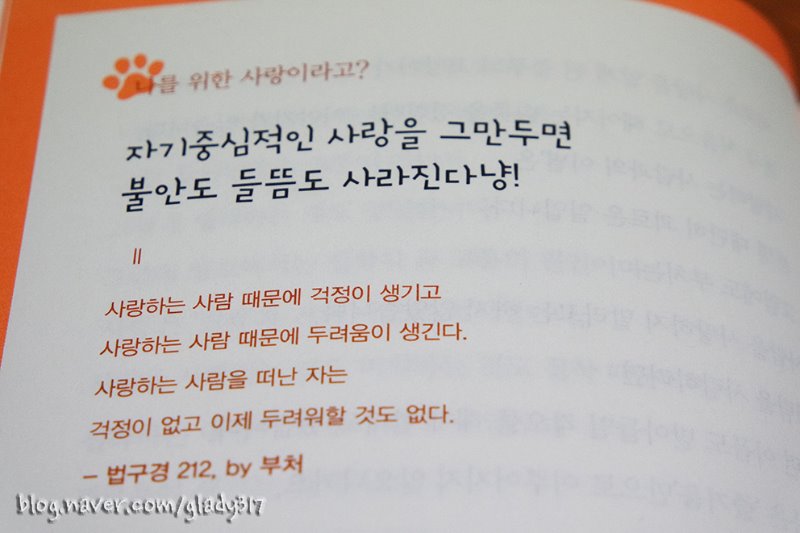 나를 위한 사랑이라고?
자기중심적인 사랑을 그만두면
불안도 들뜸도 사라진다냥!
=
사랑하는 사람 때문에 걱정이 생기고
사랑하는 사람 때문에 두려움이 생긴다.
사랑하는 사람을 떠난 자는
걱정이 없고 이제 두려워할 것도 없다.
– 법구경 212, by 부처
blog.naver.com/glady317